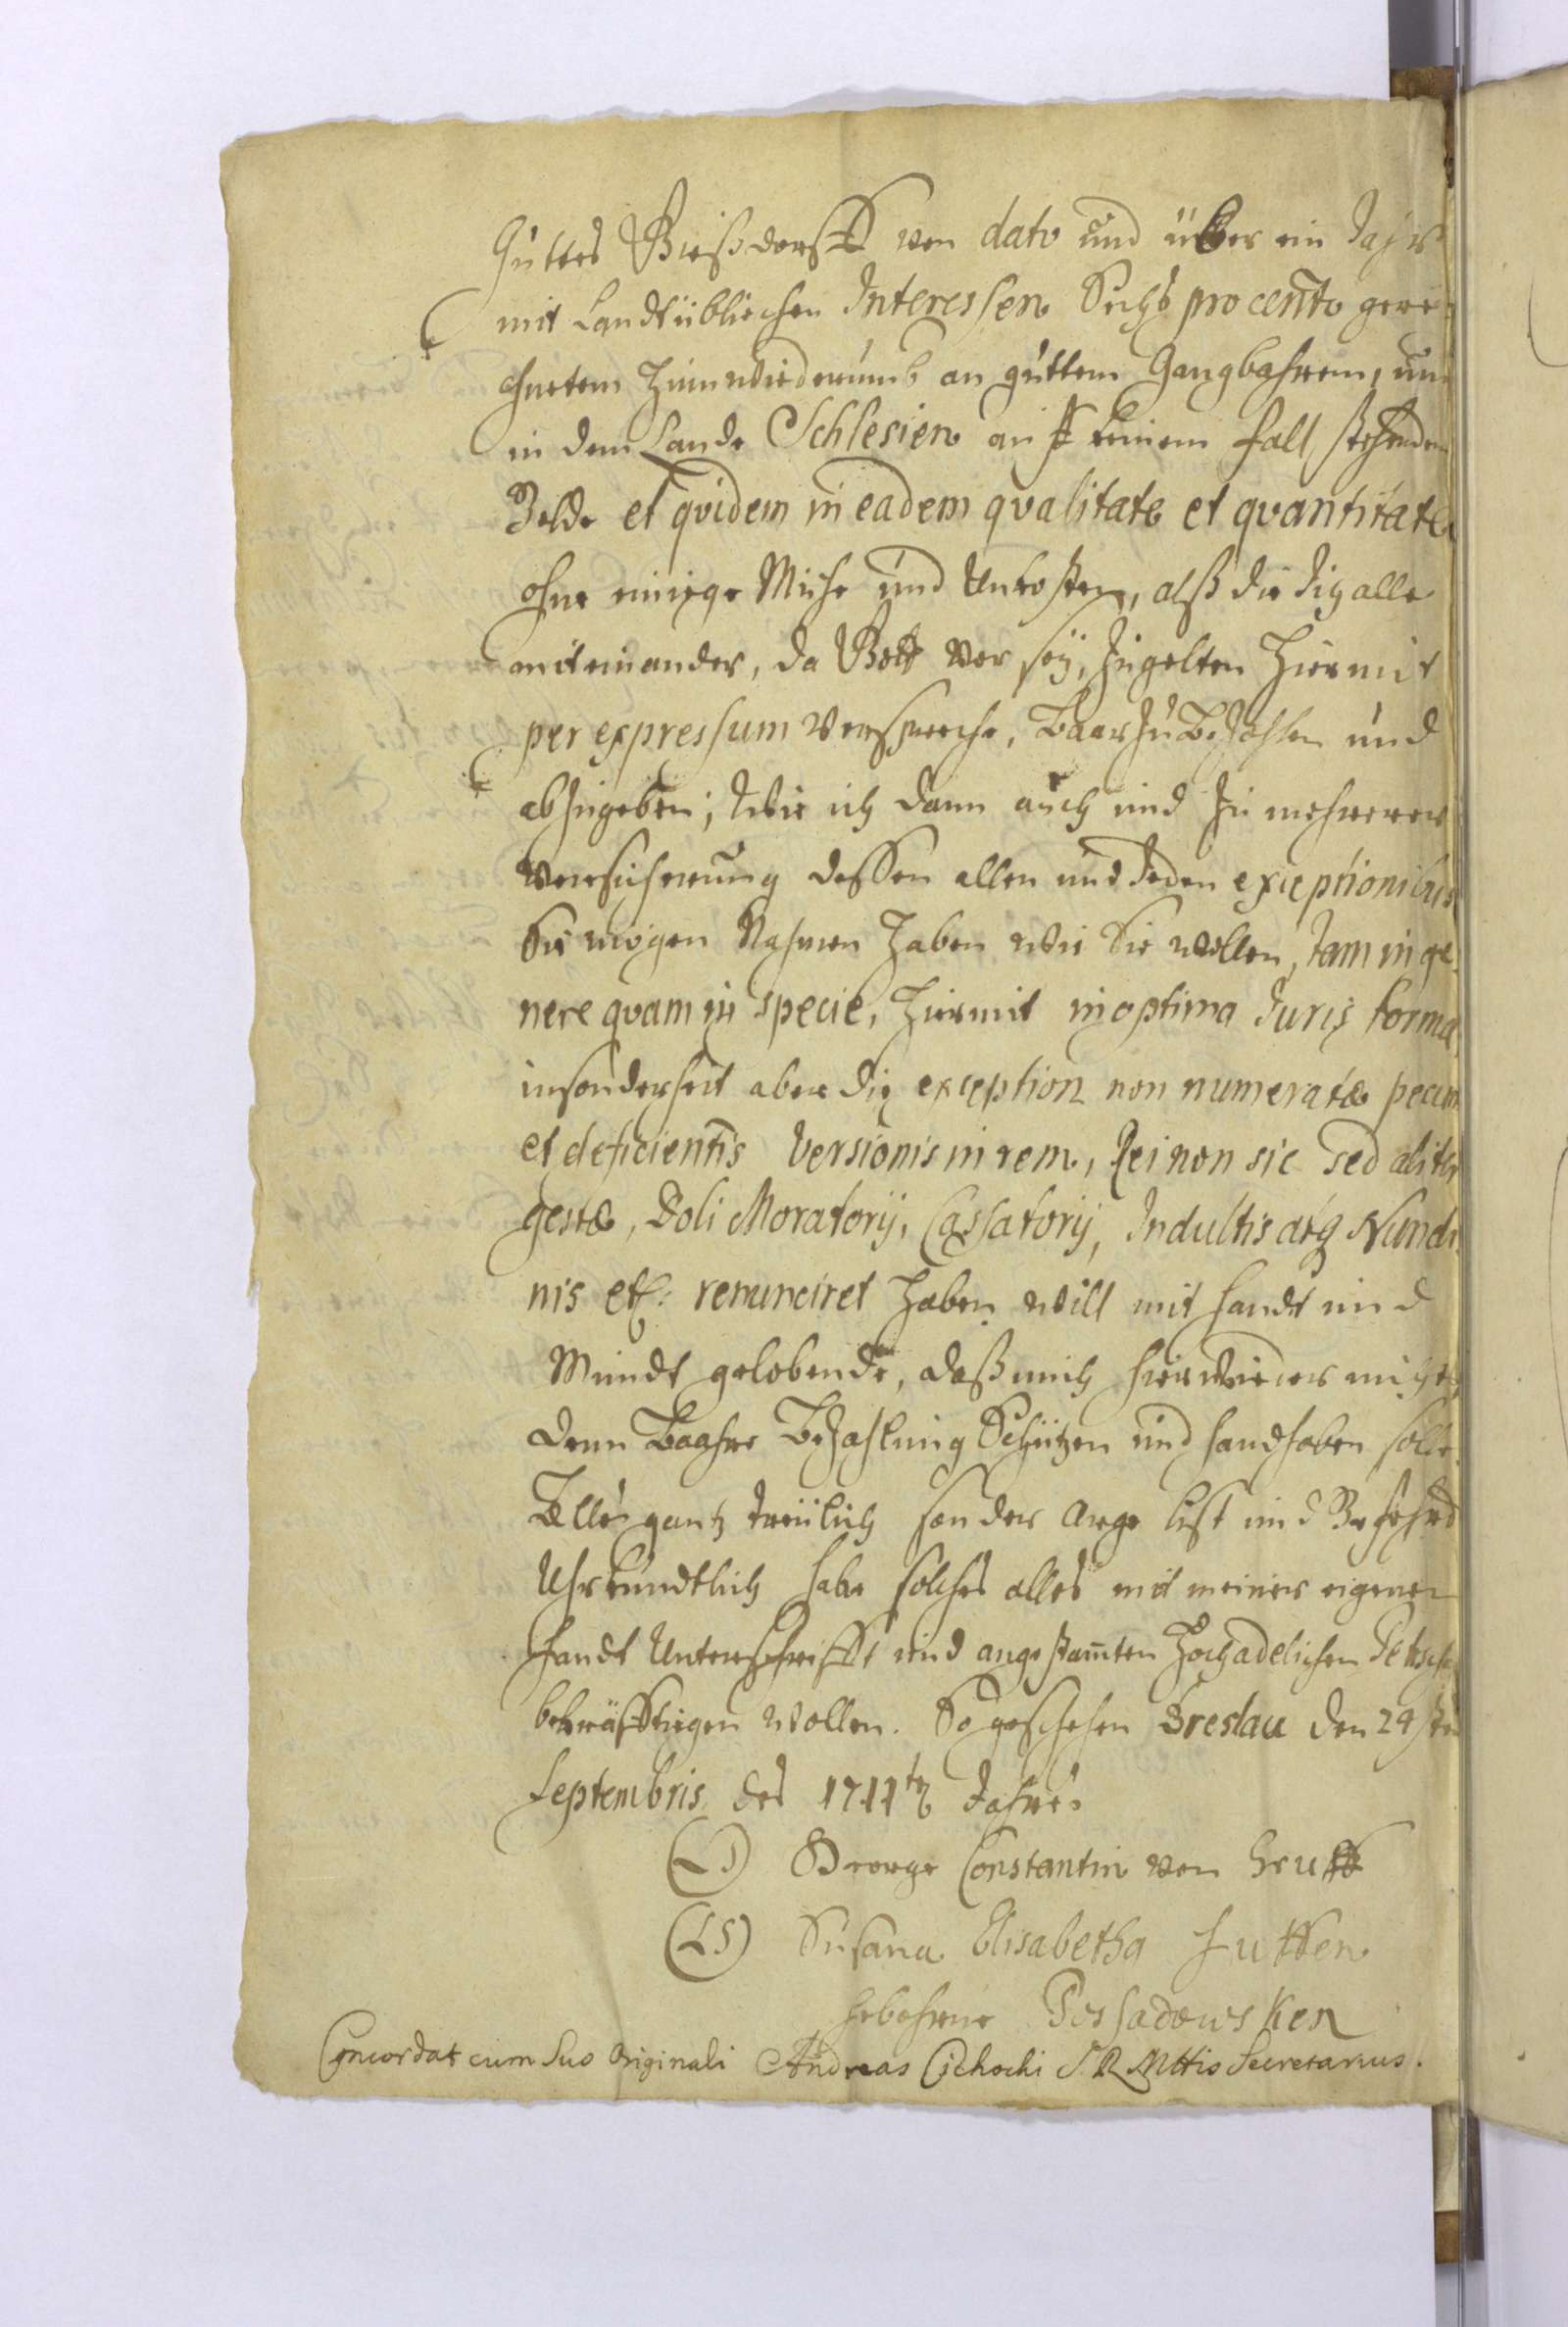 Guttes Gießdorff von dato und über ein Jahr
mit Landtüblichen Interessen Sechs pro cento gere-
chnetem hinwiederumb an guttem Gangbahrem, und
in dem Lande Schlesien auf keinem fall stehenden
Gelde et qvidem in eadem qvalitate et qvantitate
ohne einige Mühe und Unkosten, alß die ich alle
miteinander, da Gott vor sey, zugelten hiermit
per expressum Verspreche, baar zu bezahlen und
abzugeben; Wie ich dann auch und zu mehrerer
Versicherung dessen allen und Jeden exceptionibus
Sie mögen Nahmen haben wie Sie wollen, tam in ge-
nere qvam in specie, hiermit in optima Juris forma,
insonderheit aber die exception non numeratæ pecun
et deficientis Versionis in rem, Rei non sic sed aliter
gestæ, Doli Moratorij, Cassatorij, Indultis atq Nundi
nis etc: renunciret haben will mit handt und
Mundt gelobende, daß mich hierwieder nichts
denn baahre Bezahlung Schützen und handhaben solle.
Alles gantz treülich sonder arge list und Gefehrd
Uhrkundtlich habe solches alles mit meiner eigenen
handt Unterschrifft und angestamten Hochadelichen Petsch
bekräfftigen wollen. So geschehen Breslau den 29 sten
Septembris des 1711 ten Jahres
(LS) George Constantin von
(LS) Susana Elisabetha
gebohrne Possadowsken
Concordat cum Suo Originali Andreas Cichocki S. R. Mttis Secretarius.